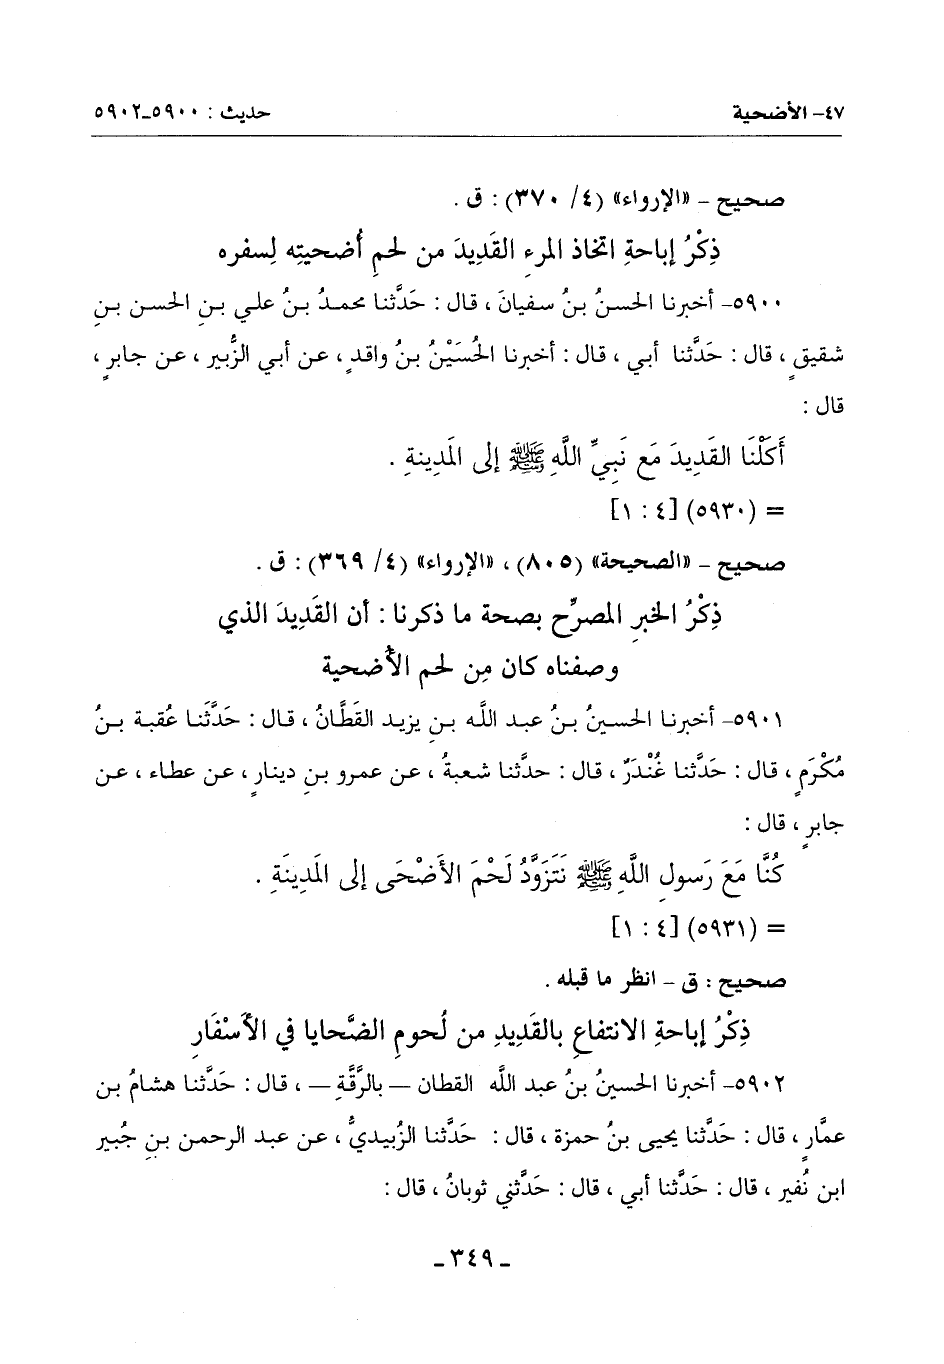 ٤٧- الأضحية حديث : ٥٩٠٠-٥٩٠٢
صحيح - «الإرواء» (٤/ ٣٧٠) : ق .
ذِكْرُ إباحةِ اتخاذ المرءِ القَدِيدَ من لحمِ أُضحيتِه لِسفره
٥٩٠٠- أخبرنا الحسنُ بنُ سفيانَ ، قال : حَدَّثنا محمدُ بنُ علي بنِ الحسن بنِ
شقيقٍ ، قال : حَدَّثنا أبي ، قال : أخبرنا الحُسَيْنُ بنُ واقدٍ ، عن أبي الزُّبير ، عن جابرٍ ،
قال :
أَكَلْنَا القَدِيدَ مَع نَبِيِّ اللَّهِ ﷺ إلى المَدِينةِ .
= (٥٩٣٠) [٤ : ١]
صحيح - «الصحيحة» (٨٠٥) ، «الإرواء» (٤/ ٣٦٩) : ق .
ذِكْرُ الخبرِ المصرِّح بصحة ما ذكرنا : أن القَدِيدَ الذي
وصفناه كان مِن لحم الأُضحية
٥٩٠١- أخبرنا الحسينُ بنُ عبد اللَّه بنِ يزيد القَطَّانُ ، قال : حَدَّثَنا عُقبة بنُ
مُكْرَمٍ ، قال : حَدَّثنا غُنْدَرٌ ، قال : حدَّثنا شعبةُ ، عن عمرو بنِ دينارٍ ، عن عطاء ، عن
جابرٍ ، قال :
كُنَّا مَعَ رَسولِ اللَّهِ ﷺ نَتَزَوَّدُ لَحْمَ الأَضْحَى إلى المَدِينَةِ .
= (٥٩٣١) [٤ : ١]
صحيح : ق - انظر ما قبله .
ذِكْرُ إباحةِ الانتفاعِ بالقَدِيدِ من لُحومِ الضَّحايا في الأَسْفَارِ
٥٩٠٢- أخبرنا الحسينُ بنُ عبد اللَّه القطان – بالرَّقَّةِ – ، قال : حَدَّثنا هشامُ بن
عمَّارٍ ، قال : حَدَّثنا يحيى بنُ حمزة ، قال : حَدَّثنا الزُّبيديُّ ، عن عبد الرحمن بنِ جُبير
ابن نُفير ، قال : حَدَّثنا أبي ، قال : حَدَّثني ثوبانُ ، قال :
- ٣٤٩ -